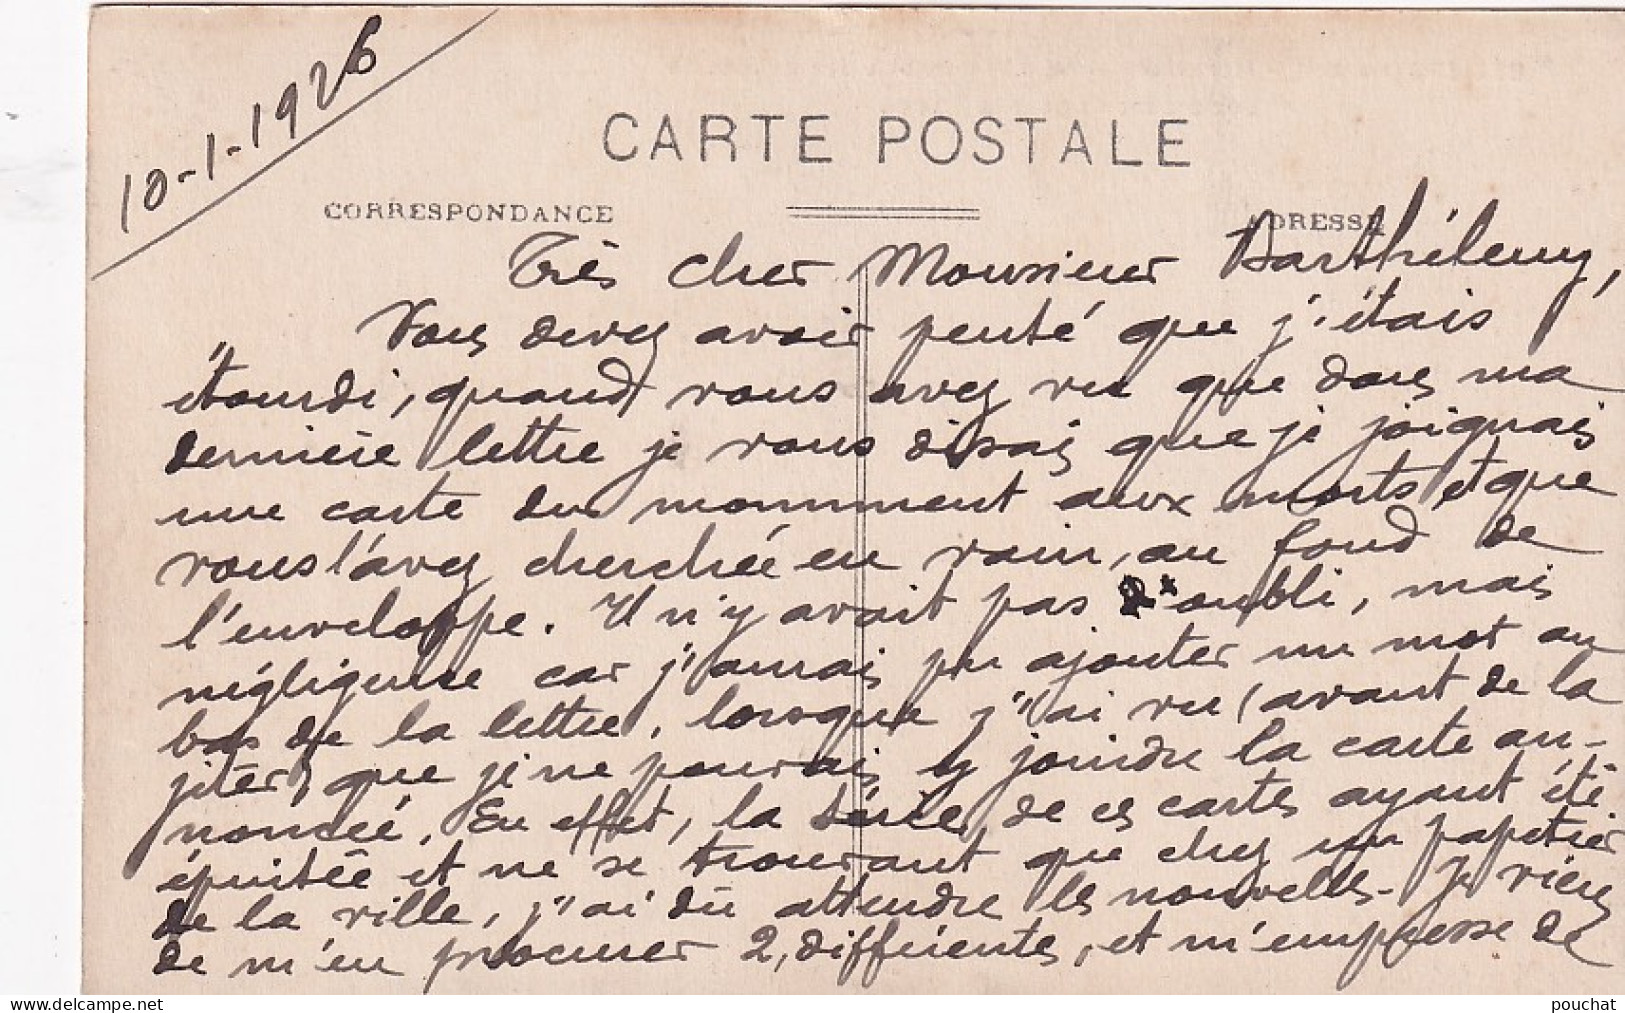 10-1-1926
CARTE POSTALE
CORRESPONDANCE
ADRESSE
Très cher Monsieur Barthélemy,
Vous devez avoir pensé que j'étais
étourdi, quand vous avez vu que dans ma
dernière lettre je vous disais que je joignais
une carte du monument aux morts et que
vous l'avez cherchée en vain, au fond de
l'enveloppe. Il n'y avait pas d'oubli, mais
négligence car j'aurais pu ajouter un mot au
bas de la lettre, lorsque j'ai vu (avant de la
jeter) que je ne pourrais y joindre la carte an-
noncée. En effet, la série de ces cartes ayant été
épuisée et ne se trouvant que chez un papetier
de la ville, j'ai dû attendre les nouvelles. Je viens
de m'en procurer 2, différentes, et m'empresse de
pouchat